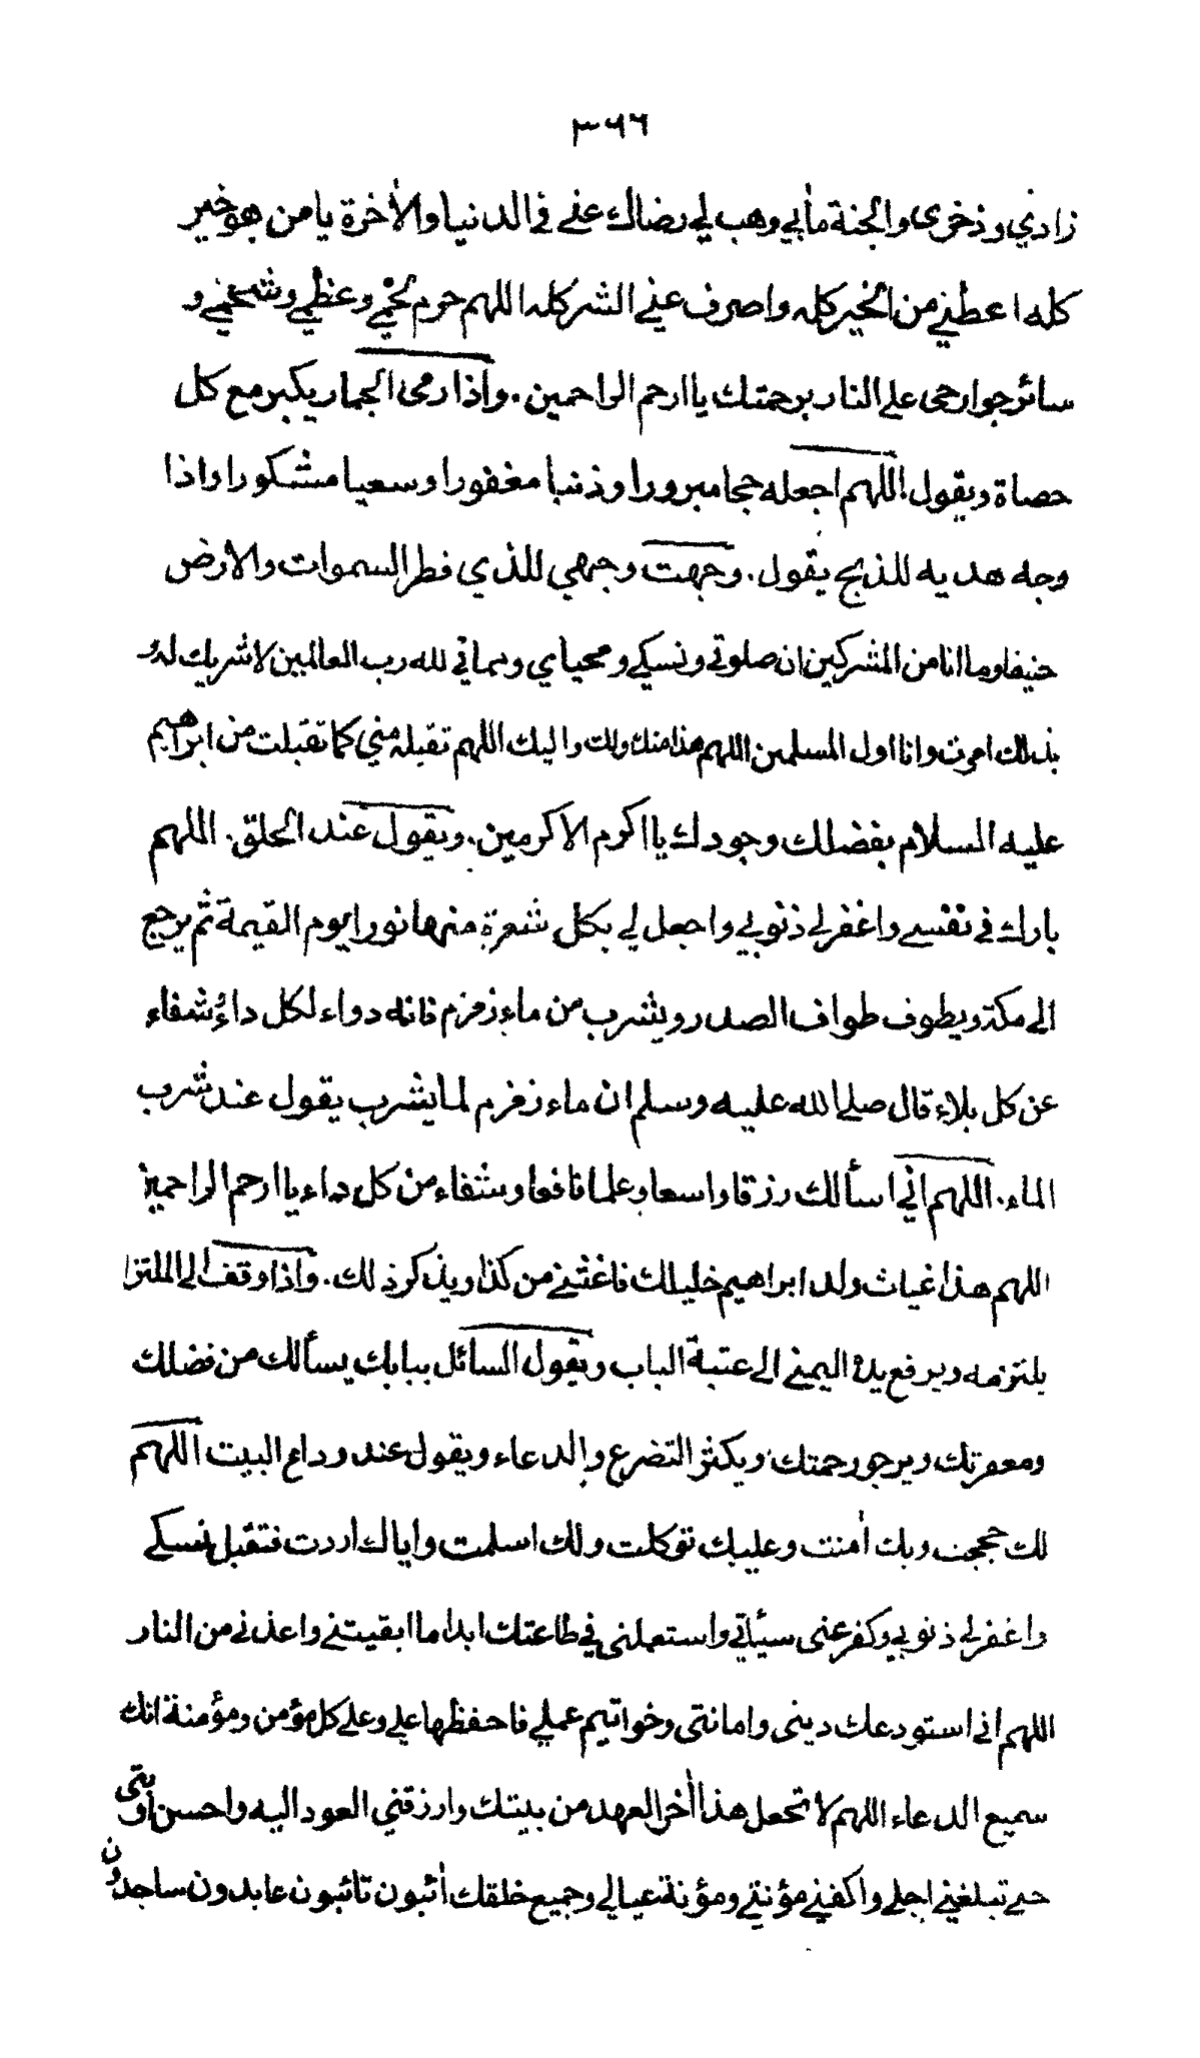 ٣٦٦
زادي وذخرى والجنة مأبي وهب لي رضاك عني في الدنيا والأخرة يا من هو خير
كله اعطني من الخير كله واصرف عني الشر كله اللهم حرم لحمي وعظمي وشحمي و
سائر جوارحى على النار برحمتك يا ارحم الراحمين. واذا رمى الجمار يكبر مع كل
حصاة ويقول. اللهم اجعله حجا مبرورا وذنبا مغفورا وسعيا مشكورا واذا
وجه هديه للذبح يقول. وجهت وجهي للذي فطر السموات والارض
حنيفا وما انا من المشركين ان صلوتي ونسكي ومحياي ومماتي لله رب العالمين لا شريك له و
بذلك امرت وانا اول المسلمين اللهم هذا منك ولك واليك اللهم تقبله مني كما تقبلت من ابراهيم
عليه السلام بفضلك وجودك يا اكرم الاكرمين. ويقول عند الحلق. اللهم
بارك في نفسي واغفر لي ذنوبي واجعل لي بكل شعرة منها نورا يوم القيمة ثم يرجع
الى مكة ويطوف طواف الصدر ويشرب من ماء زمزم فانه دواء لكل داء وشفاء
عن كل بلاء قال صلى الله عليه وسلم ان ماء زمزم لما يشرب يقول عند شرب
الماء. اللهم اني اسألك رزقا واسعا وعلما نافعا وشفاء من كل داء يا ارحم الراحمين
اللهم هذا غياث ولد ابراهيم خليلك فاغثني من كذا ويذكر ذلك. واذا وقف الى الملتزا
يلتزمه ويرفع يده اليمنى الى عتبة الباب ويقول السائل ببابك يسألك من فضلك
ومعفرتك ويرجو رحمتك ويكثر التضرع والدعاء ويقول عند وداع البيت اللهم
لك حججت وبك أمنت وعليك توكلت ولك اسلمت واياك اردت فتقبل نسكي
واغفر لي ذنوبي وكفر عني سيئاتي واستعملني في طاعتك ابدا ما ابقيتني واعذني من النار
اللهم اني استودعك ديني وامانتي وخواتيم عملي فاحفظها علي وعلى كل مؤمن ومؤمنة انك
سميع الدعاء اللهم لا تحعل هذا أخر العهد من بيتك وارزقني العود اليه واحسن اوبتى
حتى تبلغني اجلي واكفني مؤنتي ومؤنة عيالي وجميع خلقك أئبون تائبون عابدون ساجدون